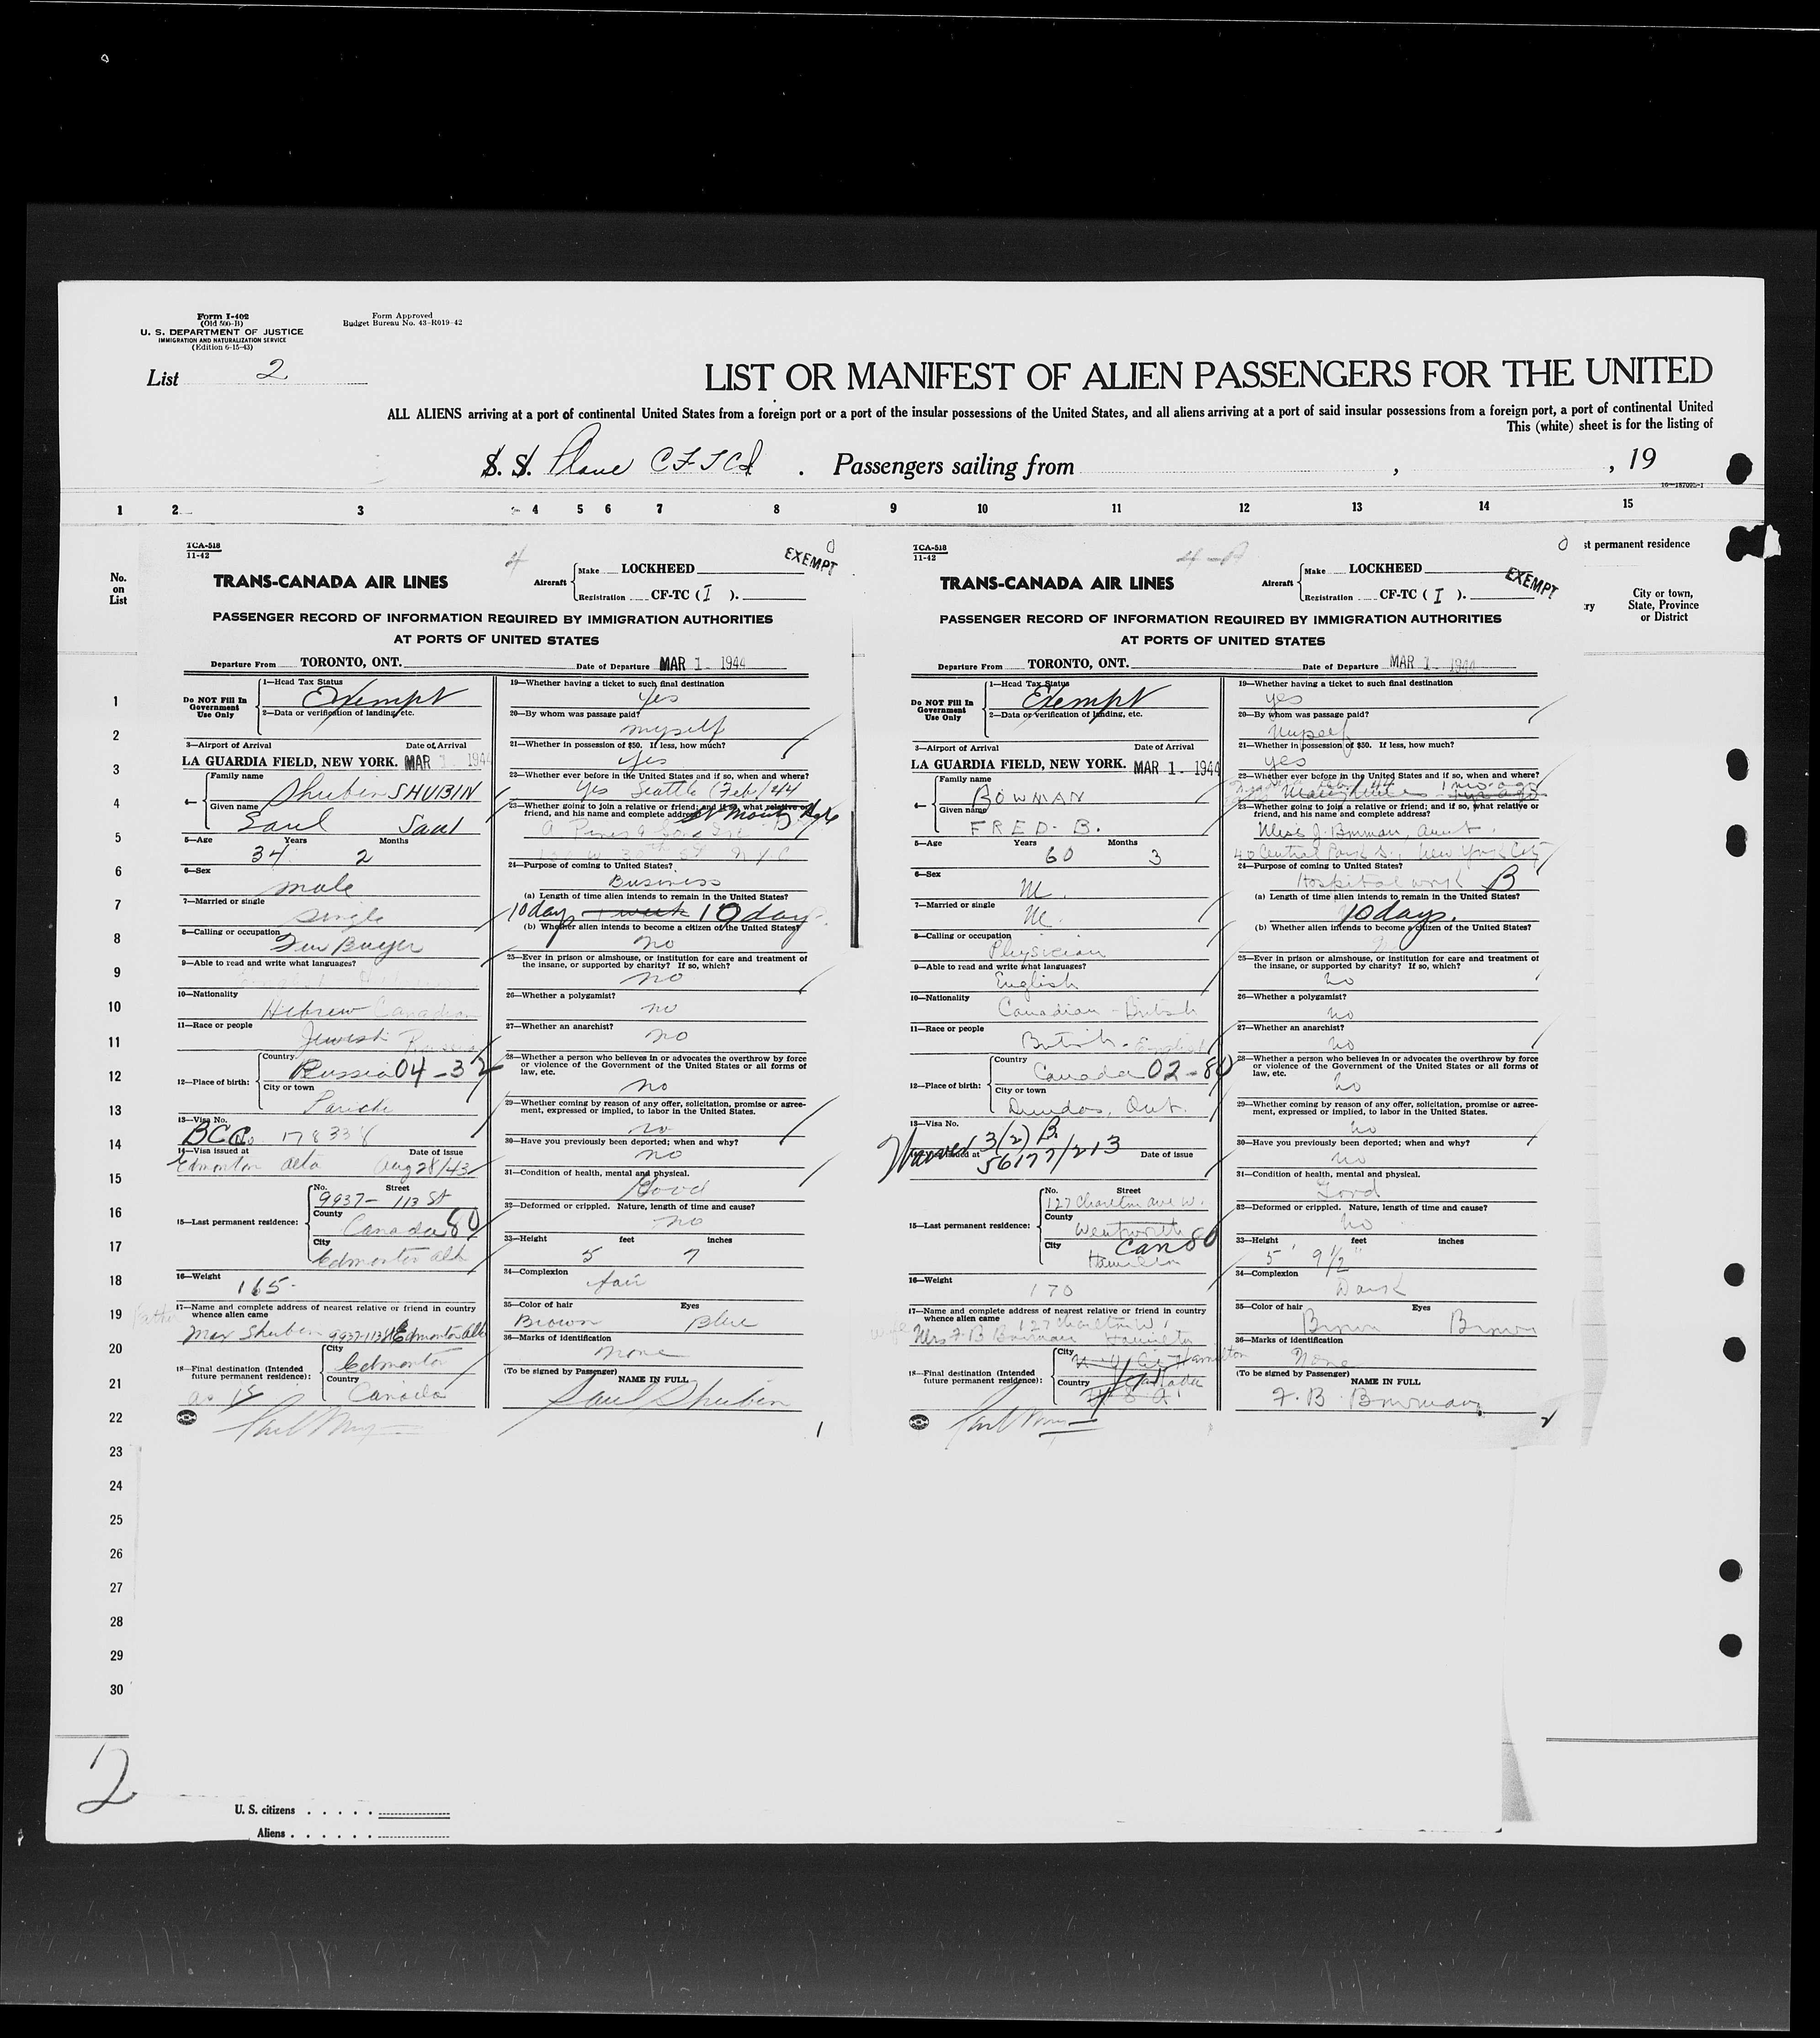 Form I-402
(Old 500-B)
U. S. DEPARTMENT OF JUSTICE
IMMIGRATION AND NATURALIZATION SERVICE
(Edition 6-15-43)
Form Approved
Budget Bureau No. 43-R019-42
List 2
LIST OR MANIFEST OF ALIEN PASSENGERS FOR THE UNITED
ALL ALIENS arriving at a port of continental United States from a foreign port or a port of the insular possessions of the United States, and all aliens arriving at a port of said insular possessions from a foreign port, a port of continental United
This (white) sheet is for the listing of
S. S. Plane CFTCI . Passengers sailing from , , 19
1 2 3 4 5 6 7 8 9 10 11 12 13 14 15
No.
on
List
st permanent residence
ry
City or town,
State, Province
or District
TCA-518
11-42
4
EXEMPT
TRANS-CANADA AIR LINES
Aircraft
Make LOCKHEED
Registration CF-TC ( I ).
PASSENGER RECORD OF INFORMATION REQUIRED BY IMMIGRATION AUTHORITIES
AT PORTS OF UNITED STATES
Departure From TORONTO, ONT. Date of Departure MAR 1 - 1944
Do NOT Fill In
Government
Use Only
1—Head Tax Status
Exempt
2—Data or verification of landing, etc.
3—Airport of Arrival Date of Arrival
LA GUARDIA FIELD, NEW YORK. MAR 1 - 1944
4—
Family name
Shubin SHUBIN
Given name
Saul Saul
5—Age Years Months
34 2
6—Sex
male
7—Married or single
single
8—Calling or occupation
Fur Buyer
9—Able to read and write what languages?
10—Nationality
Hebrew Canadian
11—Race or people
Jewish Russian
12—Place of birth:
Country
Russia 04-32
City or town
Parichi
13—Visa No.
BCC No. 178338
14—Visa issued at Date of issue
Edmonton Alta Aug 28/43
15—Last permanent residence:
No. Street
9937 - 113 St
County
Canada 80
City
Edmonton Alta
16—Weight
165
17—Name and complete address of nearest relative or friend in country
whence alien came
Father
Max Shubin 9937-113 St Edmonton Alta
18—Final destination (Intended
future permanent residence):
City
Edmonton
Country
Canada
as 15
19—Whether having a ticket to such final destination
Yes
20—By whom was passage paid?
myself
21—Whether in possession of $50. If less, how much?
Yes
22—Whether ever before in the United States and if so, when and where?
Yes Seattle (Feb/44
23—Whether going to join a relative or friend; and if so, what relative or
friend, and his name and complete address?
St Moritz Hotel
24—Purpose of coming to United States?
Business
(a) Length of time alien intends to remain in the United States?
10 days 1 week 10 days
(b) Whether alien intends to become a citizen of the United States?
no
25—Ever in prison or almshouse, or institution for care and treatment of
the insane, or supported by charity? If so, which?
no
26—Whether a polygamist?
no
27—Whether an anarchist?
no
28—Whether a person who believes in or advocates the overthrow by force
or violence of the Government of the United States or all forms of
law, etc.
no
29—Whether coming by reason of any offer, solicitation, promise or agree-
ment, expressed or implied, to labor in the United States.
no
30—Have you previously been deported; when and why?
no
31—Condition of health, mental and physical.
Good
32—Deformed or crippled. Nature, length of time and cause?
no
33—Height feet inches
5 7
34—Complexion
fair
35—Color of hair Eyes
Brown Blue
36—Marks of identification
none
(To be signed by Passenger)
NAME IN FULL
Saul Shubin
1
TCA-518
11-42
EXEMPT
TRANS-CANADA AIR LINES
Aircraft
Make LOCKHEED
Registration CF-TC ( I ).
PASSENGER RECORD OF INFORMATION REQUIRED BY IMMIGRATION AUTHORITIES
AT PORTS OF UNITED STATES
Departure From TORONTO, ONT. Date of Departure MAR 1 - 1944
Do NOT Fill In
Government
Use Only
1—Head Tax Status
Exempt
2—Data or verification of landing, etc.
3—Airport of Arrival Date of Arrival
LA GUARDIA FIELD, NEW YORK. MAR 1 - 1944
4—
Family name
BOWMAN
Given name
FRED. B.
5—Age Years Months
60 3
6—Sex
M.
7—Married or single
M.
8—Calling or occupation
Physician
9—Able to read and write what languages?
English
10—Nationality
Canadian - British
11—Race or people
British - English
12—Place of birth:
Country
Canada 02-80
City or town
Dundas, Ont.
13—Visa No.
Waived 3(2) B
issued at Date of issue
56177/213
15—Last permanent residence:
No. Street
127 Charlton Ave W.
County
Wentworth
City
Can 80
Hamilton
16—Weight
170
17—Name and complete address of nearest relative or friend in country
whence alien came
127 Charlton W.
wife Mrs F B Bowman Hamilton
18—Final destination (Intended
future permanent residence):
City
Hamilton
Country
Canada
U.S.A.
19—Whether having a ticket to such final destination
yes
20—By whom was passage paid?
Myself
21—Whether in possession of $50. If less, how much?
yes
22—Whether ever before in the United States and if so, when and where?
23—Whether going to join a relative or friend; and if so, what relative or
friend, and his name and complete address?
Miss J. Bowman, Aunt.
40 Central Park S., New York City
24—Purpose of coming to United States?
Hospital work B
(a) Length of time alien intends to remain in the United States?
10 days.
(b) Whether alien intends to become a citizen of the United States?
25—Ever in prison or almshouse, or institution for care and treatment of
the insane, or supported by charity? If so, which?
no
26—Whether a polygamist?
no
27—Whether an anarchist?
no
28—Whether a person who believes in or advocates the overthrow by force
or violence of the Government of the United States or all forms of
law, etc.
no
29—Whether coming by reason of any offer, solicitation, promise or agree-
ment, expressed or implied, to labor in the United States.
no
30—Have you previously been deported; when and why?
no
31—Condition of health, mental and physical.
Good
32—Deformed or crippled. Nature, length of time and cause?
no
33—Height feet inches
5' 9 1/2"
34—Complexion
Dark
35—Color of hair Eyes
Brown Brown
36—Marks of identification
None
(To be signed by Passenger)
NAME IN FULL
F. B. Bowman
2
1
2
3
4
5
6
7
8
9
10
11
12
13
14
15
16
17
18
19
20
21
22
23
24
25
26
27
28
29
30
2
U. S. citizens . . . . .
Aliens . . . . . .